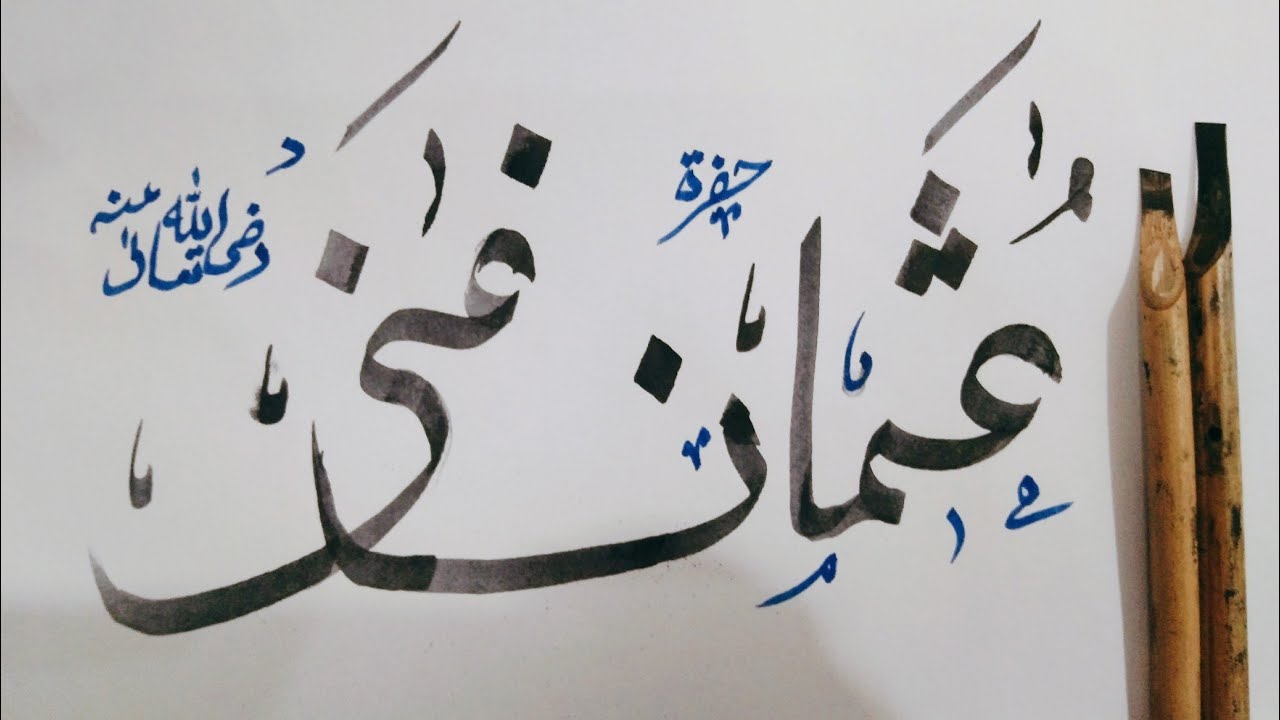 حضرة
عُثمان غنی
رضی الله تعالیٰ عنه